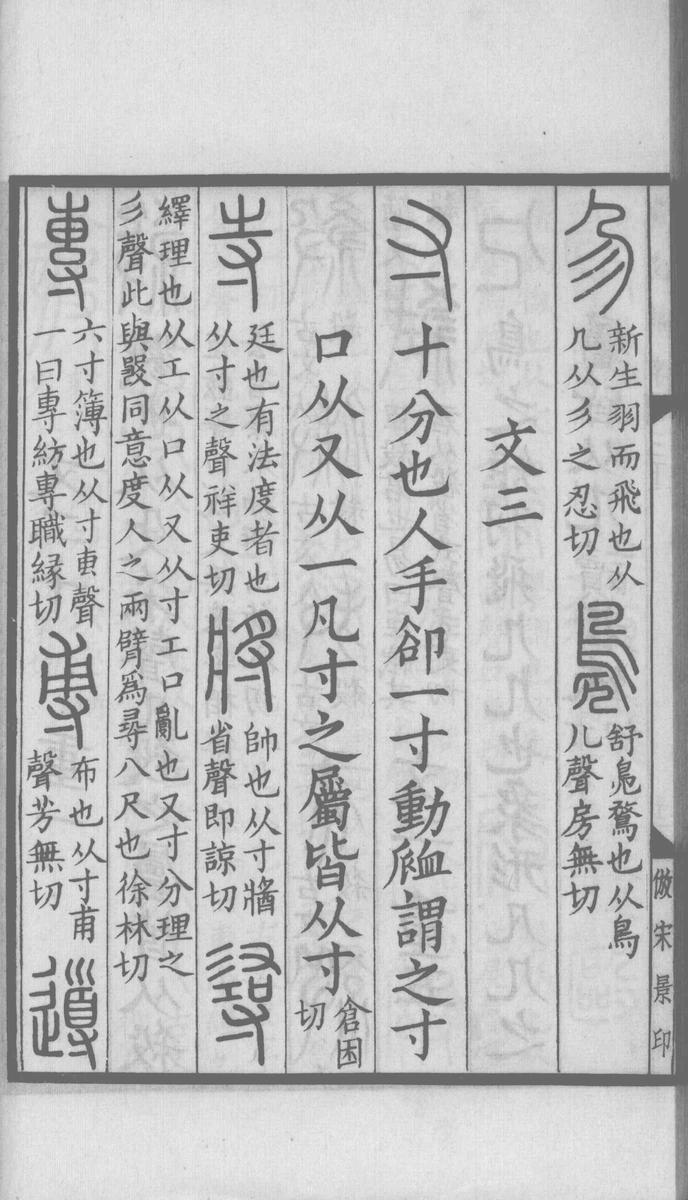 倣宋景印
𠘳
新生羽而飛也从
几从彡之忍切
鳧
舒鳧鶩也从鳥
几聲房無切
文三
寸
十分也人手卻一寸動𧖴謂之寸
口从又从一凡寸之屬皆从寸
倉困
切
寺
廷也有法度者也
从寸之聲祥吏切
將
帥也从寸醬
省聲即諒切
𢒫
繹理也从工从口从又从寸工口亂也又寸分理之
彡聲此與𤕦同意度人之兩臂爲尋八尺也徐林切
專
六寸簿也从寸叀聲
一曰專紡專職緣切
尃
布也从寸甫
聲芳無切
導